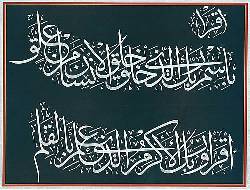 اقرأ
باسم ربك الذي خلق خلق الإنسان من علق
اقرأ وربك الأكرم الذي علم بالقلم